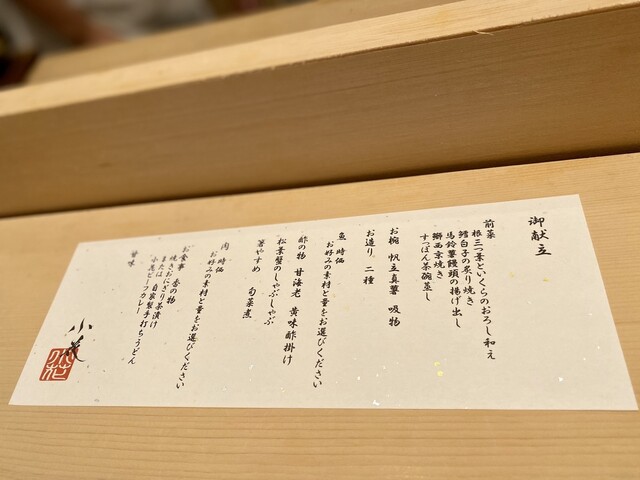 御献立
前菜
根三つ葉といくらのおろし和え
鱈白子の炙り焼き
馬鈴薯饅頭の揚げ出し
鰤西京焼き
すっぽん茶碗蒸し
お椀 帆立真薯 吸物
お造り 二種
魚 時価
お好みの素材と量をお選びください
酢の物 甘海老 黄味酢掛け
松葉蟹のしゃぶしゃぶ
箸やすめ 旬菜煮
肉 時価
お好みの素材と量をお選びください
お食事 香の物
焼きおにぎり茶漬け
または 自家製手打ちうどん
小花ビーフカレー
甘味
小花